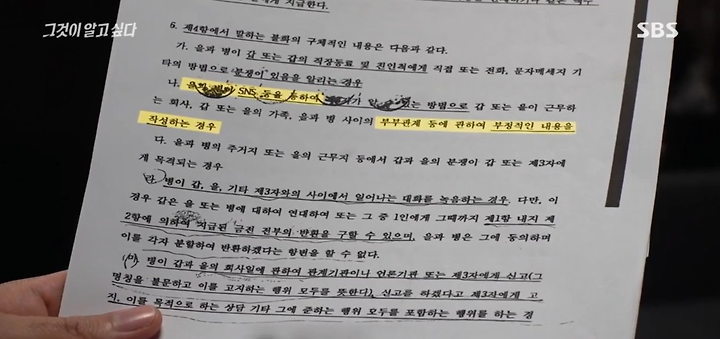 그것이 알고 싶다
SBS
지급한다.
6. 제4항에서 말하는 불화의 구체적인 내용은 다음과 같다.
가. 을과 병이 갑 또는 갑의 직장동료 및 친인척에게 직접 또는 전화, 문자메세지 기
타의 방법으로 분쟁이 있음을 알리는 경우
나. SNS 등을 통하여 있는 방법으로 갑 또는 을이 근무하
는 회사, 갑 또는 을의 가족, 을과 병 사이의 부부관계 등에 관하여 부정적인 내용을
작성하는 경우
다. 을과 병의 주거지 또는 을의 근무지 등에서 갑과 을의 분쟁이 갑 또는 제3자에
게 목격되는 경우
란 병이 갑, 을, 기타 제3자와의 사이에서 일어나는 대화를 녹음하는 경우. 다만, 이
경우 갑은 을 또는 병에 대하여 연대하여 또는 그 중 1인에게 그때까지 제1항 내지 제
2항에 의하여 지급된 금전 전부의 반환을 구할 수 있으며, 을과 병은 그에 동의하며
이를 각자 분할하여 반환하겠다는 항변을 할 수 없다.
병이 갑과 을의 회사일에 관하여 관계기관이나 언론기관 또는 제3자에게 신고(그
명칭을 불문하고 이를 고지하는 행위 모두를 뜻한다), 신고를 하겠다고 제3자에게 고
지, 이를 목적으로 하는 상담 기타 그에 준하는 행위 모두를 포함하는 행위를 하는 경